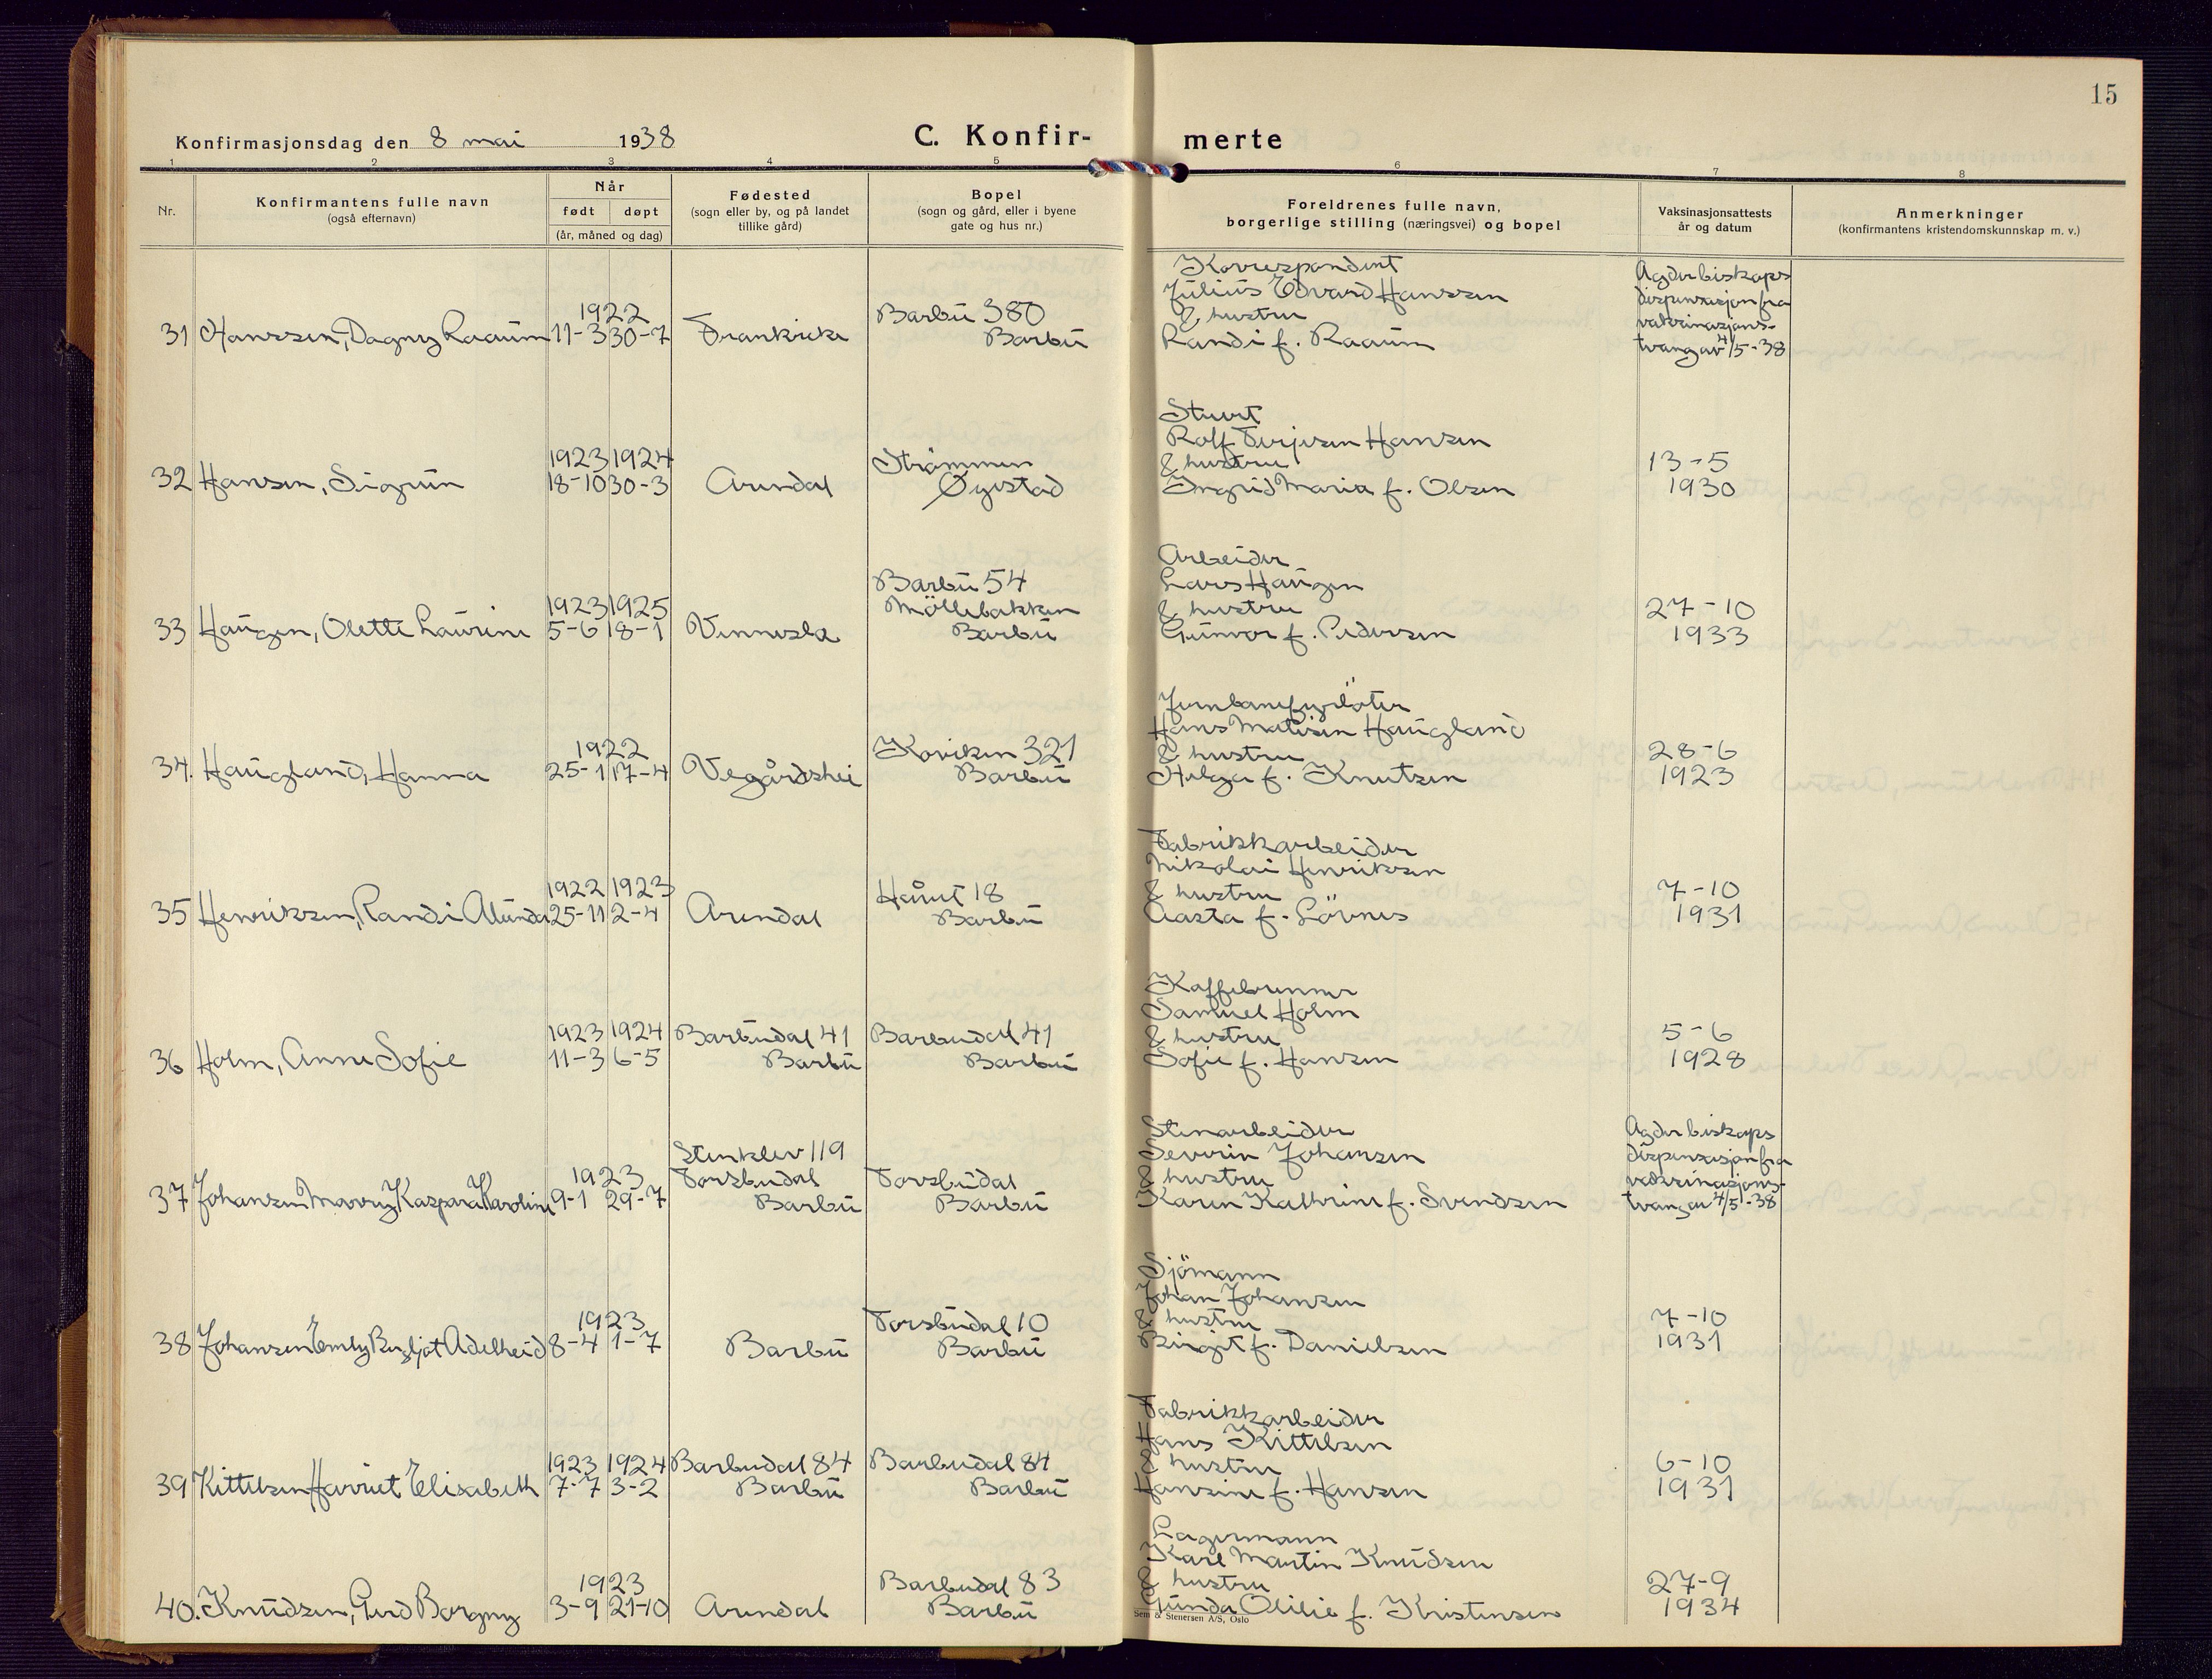 15
Konfirmasjonsdag den 8 mai 1938
C. Konfir-merte
1 2 3 4 5 6 7 8
Nr.
Konfirmantens fulle navn
(også efternavn)
Når
født døpt
(år, måned og dag)
Fødested
(sogn eller by, og på landet
tillike gård)
Bopel
(sogn og gård, eller i byene
gate og hus nr.)
Foreldrenes fulle navn,
borgerlige stilling (næringsvei) og bopel
Vaksinasjonsattests
år og datum
Anmerkninger
(konfirmantens kristendomskunnskap m. v.)
31 Hanssen, Dagny Raaum
1922
11-3 30-7
Frankrike
Barbu 380
Barbu
Korrespondent
Julius Edvard Hanssen
& hustru
Randi f. Raaum
Agder biskops
dispensasjon fra
vaksinasjons-
tvang av 4/5-38
32 Hansen, Sigrun
1923 1924
18-10 30-3
Arendal
Strömmen
Øyestad
Stuert
Rolf Terjesen Hansen
& hustru
Ingrid Maria f. Olsen
13-5
1930
33 Haugen, Olette Laurine
1923 1925
5-6 18-1
Vennesla
Barbu 54
Möllebakken
Barbu
Arbeider
Lars Haugen
& hustru
Gunvor f. Pedersen
27-10
1933
34. Haugland, Hanna
1922
25-1 17-4
Vegårdshei
Korviken 321
Barbu
Jernbanefyrböter
Hans Matisen Haugland
& hustru
Helga f. Knutsen
28-6
1923
35 Henriksen, Randi Alunda
1922 1923
25-11 2-4
Arendal
Håvet 18
Barbu
Fabrikkarbeider
Nikolai Henriksen
& hustru
Aasta f. Lövnes
7-10
1931
36 Holm, Anne Sofie
1923 1924
11-3 6-5
Barbudal 41
Barbu
Barbudal 41
Barbu
Kaffebrenner
Samuel Holm
& hustru
Sofie f. Hansen
5-6
1928
37 Johansen Marry Kaspara Karoline
1923
9-1 29-7
Stenklev 119
Torsbudal
Barbu
Torsbudal
Barbu
Stenarbeider
Severin Johansen
& hustru
Karen Kathrine f. Svendsen
Agder biskops
dispensasjon fra
vaksinasjons-
tvang av 4/5-38
38 Johansen Emly Bergljot Adelheid
1923
8-4 1-7
Barbu
Torsbudal 10
Barbu
Sjömann
Johan Johansen
& hustru
Birgit f. Danielsen
7-10
1931
39 Kittelsen Harriet Elisabeth
1923 1924
7-7 3-2
Barbudal 84
Barbu
Barbudal 84
Barbu
Fabrikkarbeider
Hans Kittelsen
& hustru
Hansine f. Hansen
6-10
1931
40. Knudsen, Gerd Borgny
1923
3-9 21-10
Arendal
Barbudal 83
Barbu
Lagermann
Karl Martin Knudsen
& hustru
Gunda Otilie f. Kristensen
27-9
1934
Sem & Stenersen A/S, Oslo